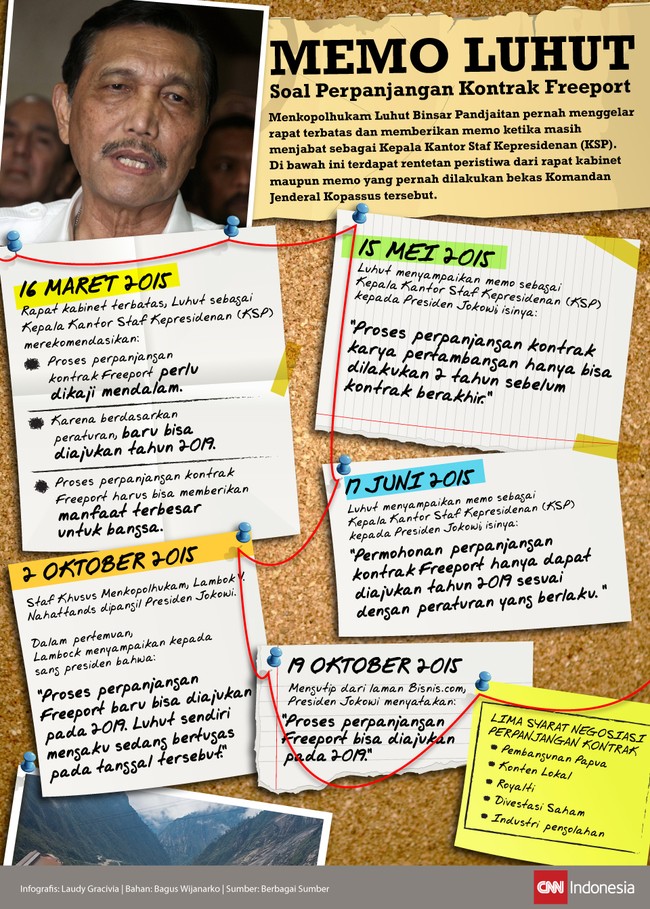 MEMO LUHUT
Soal Perpanjangan Kontrak Freeport
Menkopolhukam Luhut Binsar Pandjaitan pernah menggelar
rapat terbatas dan memberikan memo ketika masih
menjabat sebagai Kepala Kantor Staf Kepresidenan (KSP).
Di bawah ini terdapat rentetan peristiwa dari rapat kabinet
maupun memo yang pernah dilakukan bekas Komandan
Jenderal Kopassus tersebut.
16 MARET 2015
Rapat kabinet terbatas, Luhut sebagai
Kepala Kantor Staf Kepresidenan (KSP)
merekomendasikan:
Proses perpanjangan
kontrak Freeport perlu
dikaji mendalam.
Karena berdasarkan
peraturan, baru bisa
diajukan tahun 2019.
Proses perpanjangan kontrak
Freeport harus bisa memberikan
manfaat terbesar
untuk bangsa.
15 MEI 2015
Luhut menyampaikan memo sebagai
Kepala Kantor Staf Kepresidenan (KSP)
kepada Presiden Jokowi, isinya:
"Proses perpanjangan kontrak
karya pertambangan hanya bisa
dilakukan 2 tahun sebelum
kontrak berakhir."
17 JUNI 2015
Luhut menyampaikan memo sebagai
Kepala Kantor Staf Kepresidenan (KSP)
kepada Presiden Jokowi, isinya:
"Permohonan perpanjangan
kontrak Freeport hanya dapat
diajukan tahun 2019 sesuai
dengan peraturan yang berlaku."
2 OKTOBER 2015
Staf Khusus Menkopolhukam, Lambok V.
Nahattands dipangil Presiden Jokowi.
Dalam pertemuan,
Lambock menyampaikan kepada
sang presiden bahwa:
"Proses perpanjangan
Freeport baru bisa diajukan
pada 2019. Luhut sendiri
mengaku sedang bertugas
pada tanggal tersebut."
19 OKTOBER 2015
Mengutip dari laman Bisnis.com,
Presiden Jokowi menyatakan:
"Proses perpanjangan
Freeport bisa diajukan
pada 2019."
LIMA SYARAT NEGOSIASI
PERPANJANGAN KONTRAK
Pembangunan Papua
Konten Lokal
Royalti
Divestasi Saham
Industri pengolahan
Infografis: Laudy Gracivia | Bahan: Bagus Wijanarko | Sumber: Berbagai Sumber
CNN Indonesia